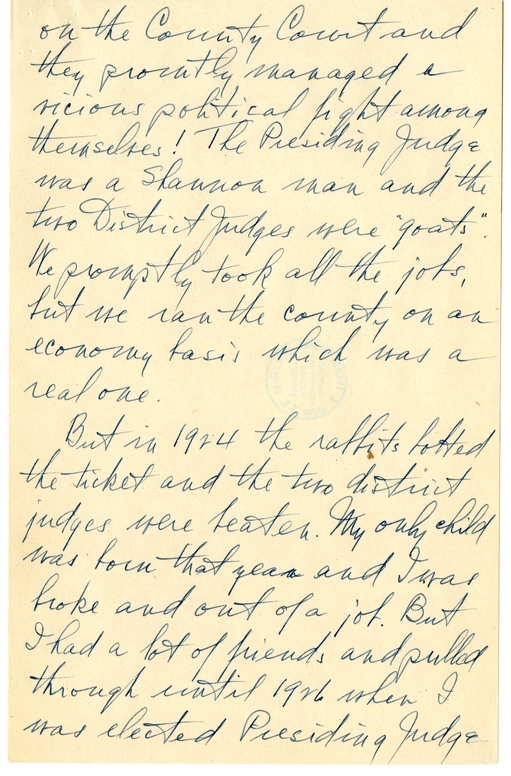 on the County Court and
they promtly managed a
vicious political fight among
themselves! The Presiding Judge
was a Shannon man and the
two District Judges were "goats".
We promptly took all the jobs,
but we ran the county on an
economy basis which was a
real one.
But in 1924 the rabbits bolted
the ticket and the two district
judges were beaten. My only child
was born that year and I was
broke and out of a job. But
I had a lot of friends and pulled
through until 1926 when I
was elected Presiding Judge